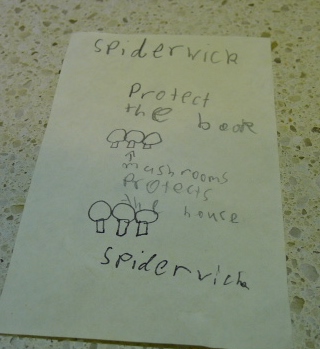 spiderwick
Protect
the book
mushrooms
Protects
the house
spiderwick